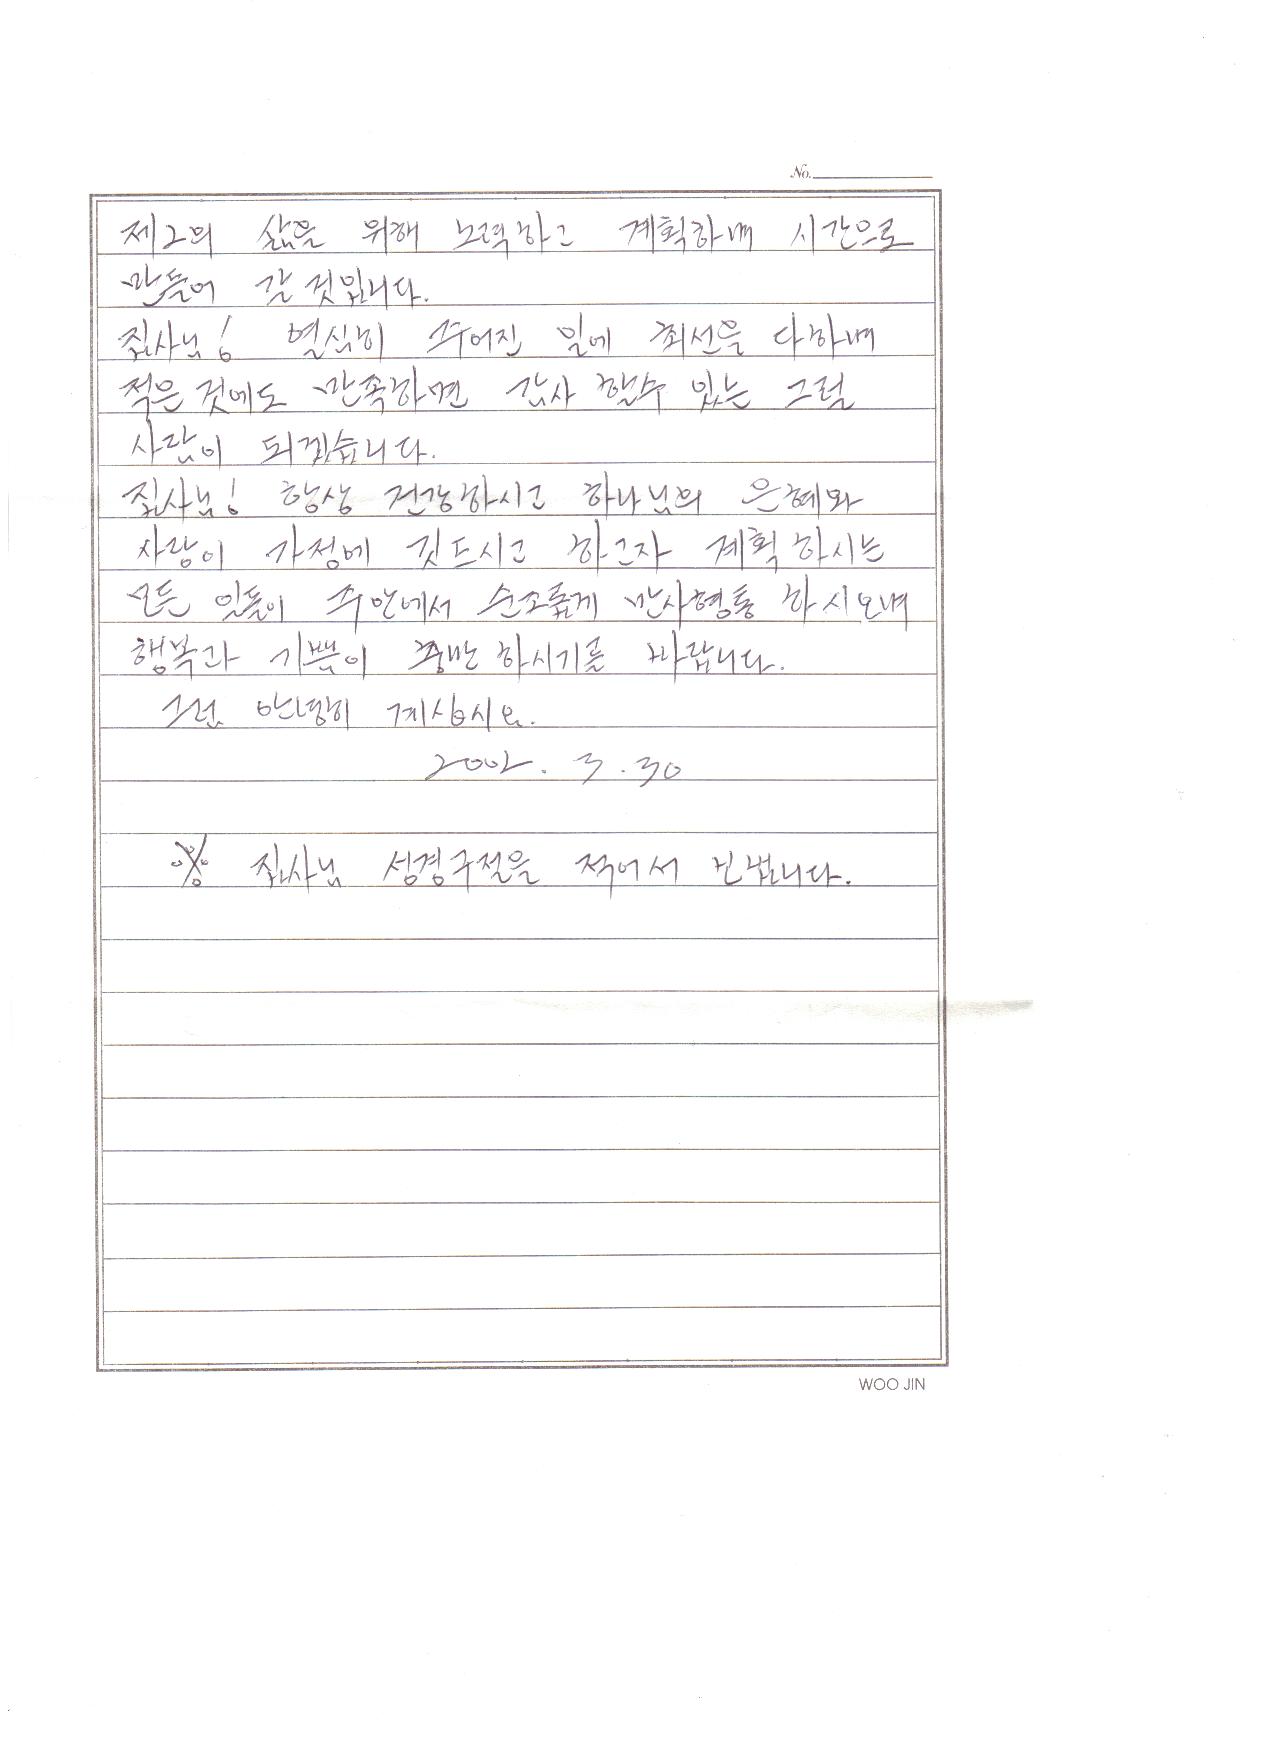 No.
제2의 삶을 위해 노력하고 계획하며 시간으로
만들어 갈 것입니다.
집사님! 열심히 주어진 일에 최선을 다하며
적은 것에도 만족하면 감사 할수 있는 그럴
사람이 되겠습니다.
집사님! 항상 건강하시고 하나님의 은혜와
사랑이 가정에 깃드시고 하고자 계획하시는
모든 일들이 주안에서 순조롭게 만사형통 하시오며
행복과 기쁨이 충만 하시기를 바랍니다.
그럼 안녕히 계십시요.
2002. 3. 30
※ 집사님 성경구절을 적어서
WOO JIN